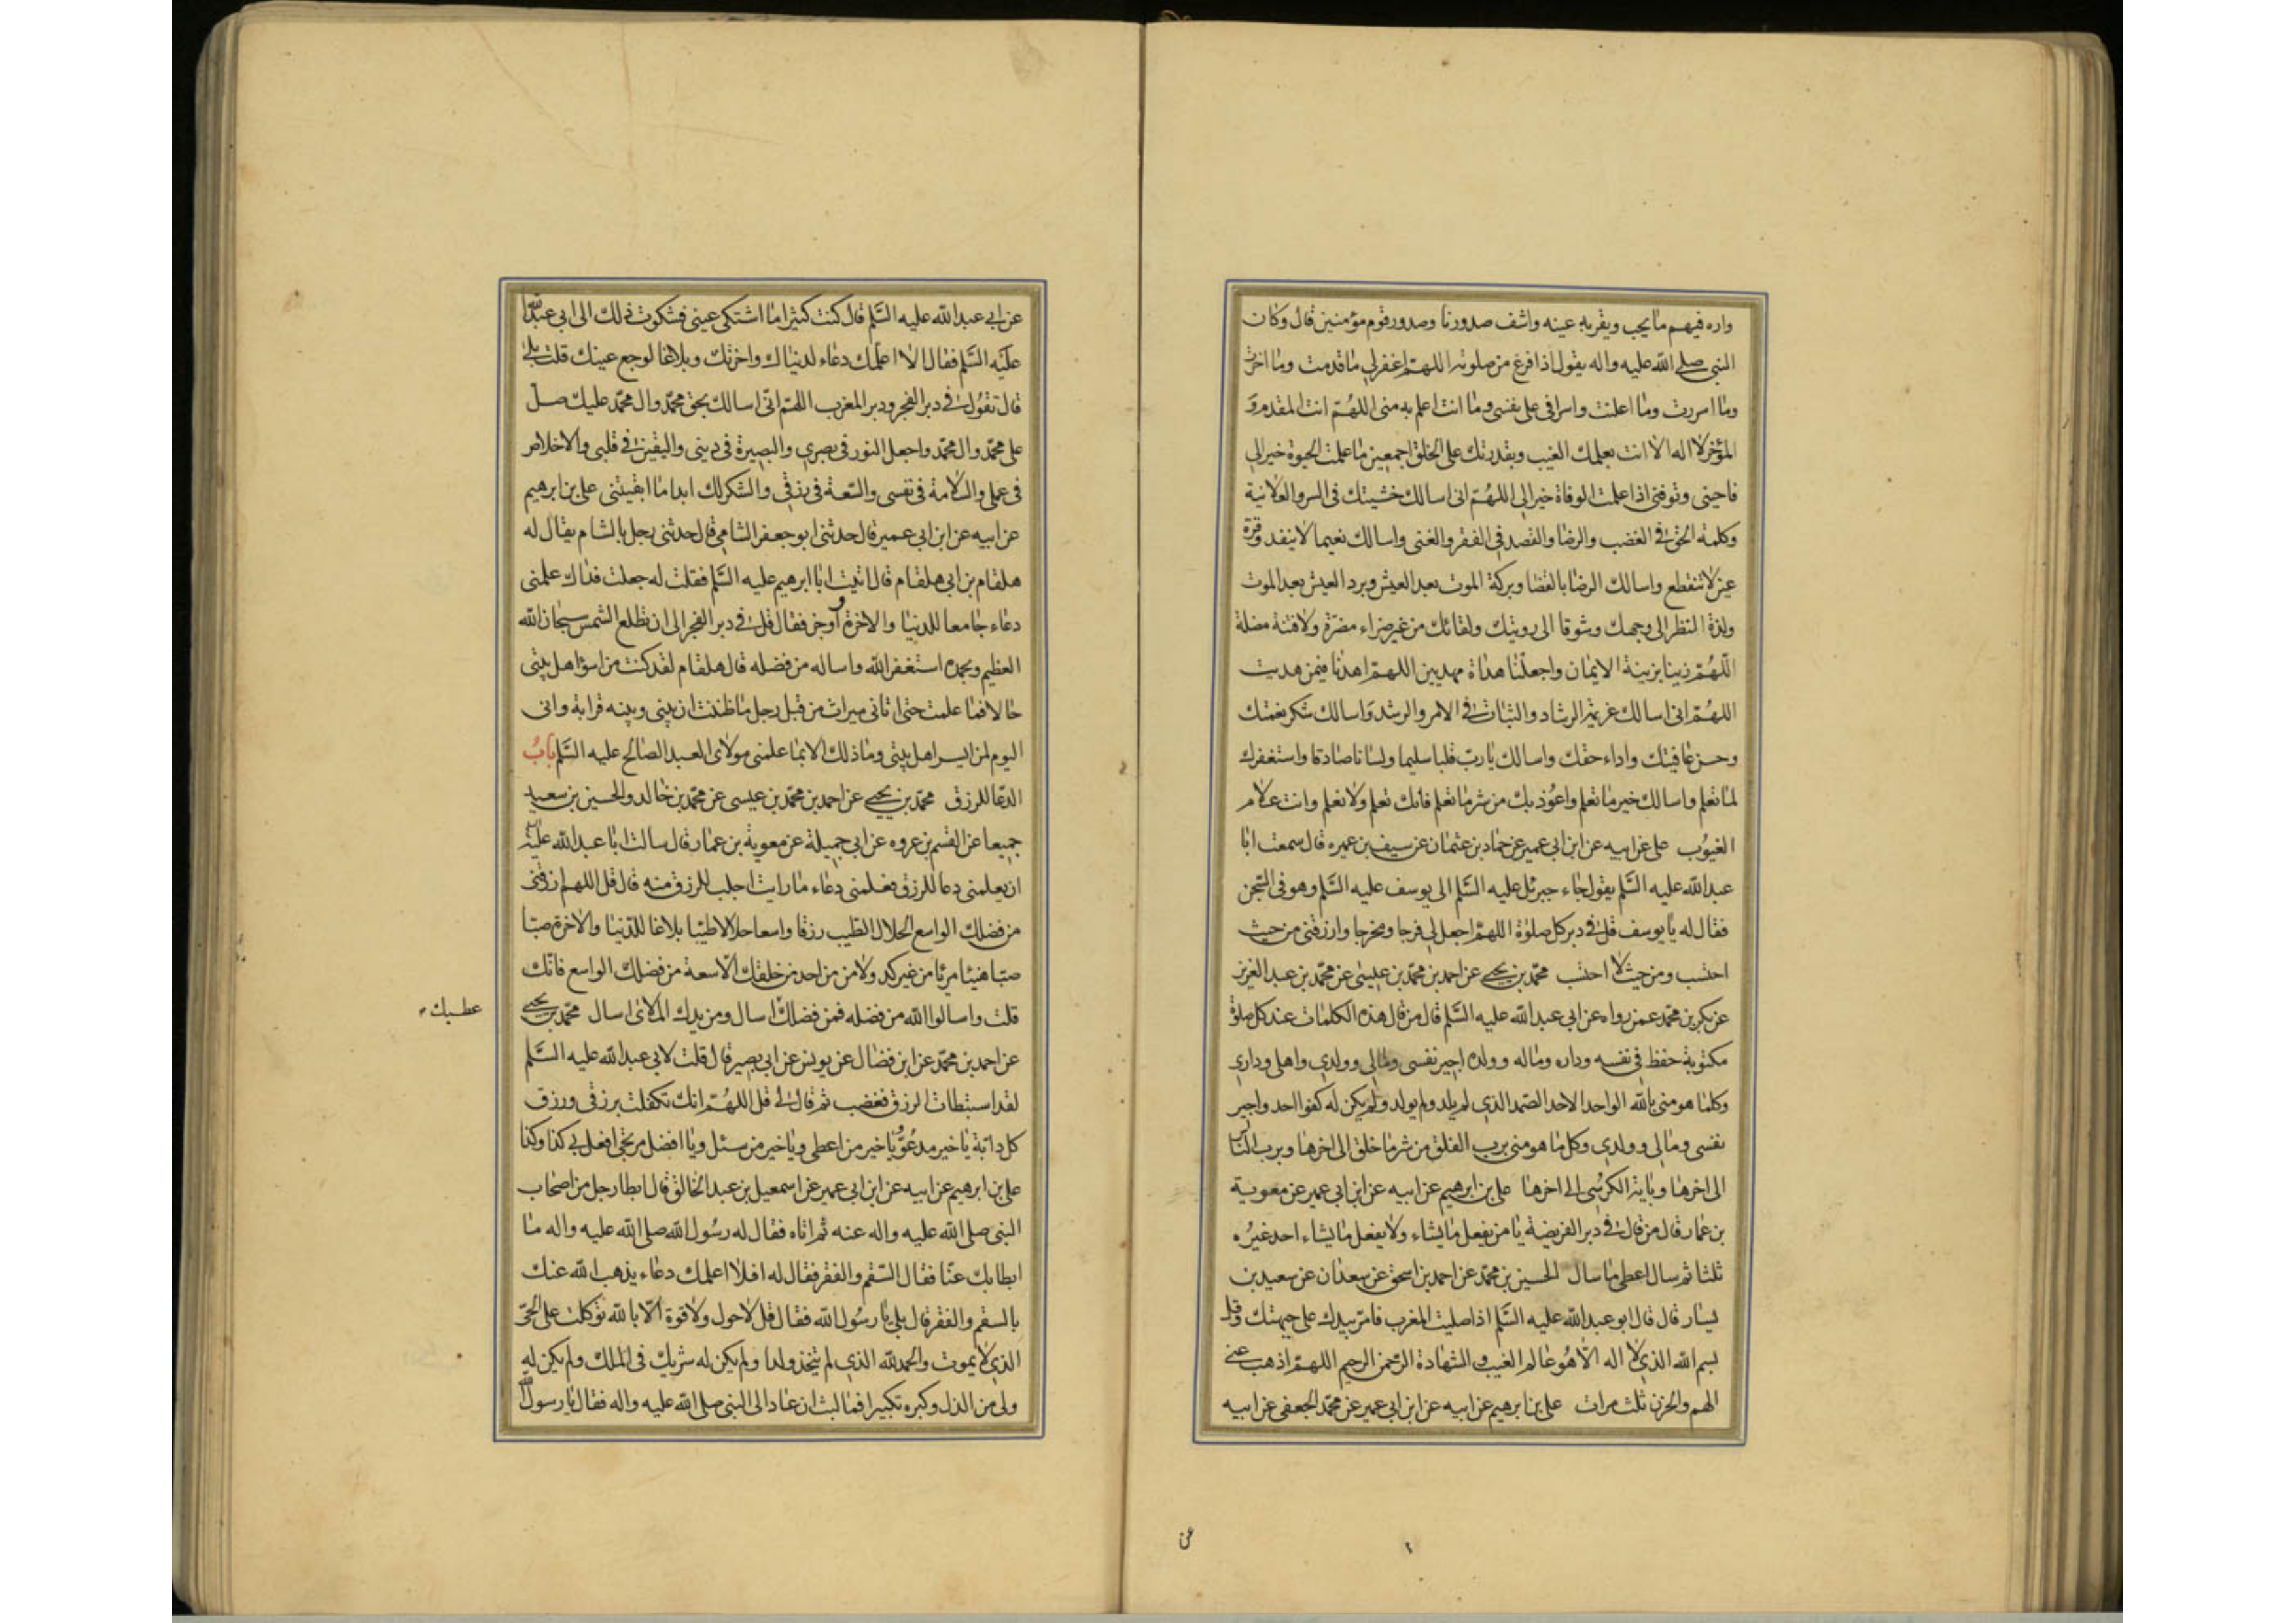 واره فيهم ما يحب ويقر به عينه واشف صدورنا وصدور قوم مؤمنين قال وكان
النبي صلى الله عليه واله يقول اذا فرغ من صلوته اللهم اغفر لي ما قدمت وما اخرت
وما اسررت وما اعلنت واسرافي على نفسي وما انت اعلم به مني اللهم انت المقدم و
المؤخر لا اله الا انت بعلمك الغيب وبقدرتك على الخلق اجمعين ما علمت الحيوة خير الي
فاحيني وتوفني اذا علمت الوفاة خير الي اللهم اني اسالك خشيتك في السر والعلانية
وكلمة الحق في الغضب والرضا والقصد في الفقر والغنى واسالك نعيما لا ينفد وقرة
عين لا تنقطع واسالك الرضا بالقضا وبركة الموت بعد العيش وبرد العيش بعد الموت
ولذة النظر الى وجهك وشوقا الى رويتك ولقائك من غير ضراء مضرة ولا فتنة مضلة
اللهم زينا بزينة الايمان واجعلنا هداة مهديين اللهم اهدنا فيمن هديت
اللهم اني اسالك عزيمة الرشاد والثبات في الامر والرشد واسالك شكر نعمتك
وحسن عافيتك واداء حقك واسالك يا رب قلبا سليما ولسانا صادقا واستغفرك
لما تعلم واسالك خير ما تعلم واعوذ بك من شر ما تعلم فانك تعلم ولا نعلم وانت علام
الغيوب علي عن ابيه عن ابن ابي عمير عن حماد بن عثمان عن سيف بن عميره قال سمعت ابا
عبد الله عليه السلم يقول جاء جبرئل عليه السلم الى يوسف عليه السلم وهو في السجن
فقال له يا يوسف قل في دبر كل صلوة اللهم اجعل لي فرجا ومخرجا وارزقني من حيث
احتسب ومن حيث لا احتسب محمد بن يحيى عن احمد بن محمد بن عيسى عن محمد بن عبد العزيز
عن بكر بن محمد عمن رواه عن ابي عبد الله عليه السلم قال من قال هذه الكلمات عند كل صلوة
مكتوبة حفظ في نفسه وداره وماله وولده اجير نفسي ومالي وولدي واهلي وداري
وكلما هو مني بالله الواحد الاحد الصمد الذي لم يلد ولم يولد ولم يكن له كفوا احد واجير
نفسي ومالي وولدي وكل ما هو مني برب الفلق من شر ما خلق الى اخرها وبرب الناس
الى اخرها وباية الكرسي الى اخرها علي بن ابرهيم عن ابيه عن ابن ابي عمير عن معوية
بن عمار قال من قال في دبر الفريضة يا من يفعل ما يشاء ولا يفعل ما يشاء احد غيره
ثلثا ثم سال اعطي ما سال الحسين بن محمد عن احمد بن اسحق عن سعدان عن سعيد بن
يسار قال قال ابو عبد الله عليه السلم اذا صليت المغرب فامر بيدك على جبهتك وقل
بسم الله الذي لا اله الا هو عالم الغيب والشهادة الرحمن الرحيم اللهم اذهب عني
الهم والحزن ثلث مرات علي بن ابرهيم عن ابيه عن ابن ابي عمير عن محمد الجعفي عن ابيه
عن
عن ابي عبد الله عليه السلم قال كنت كثيرا ما اشتكي عيني فشكوت ذلك الى ابي عبد الله
عليه السلم فقال الا اعلمك دعاء لدنياك واخرتك وبلاغا لوجع عينك قلت بلى
قال تقول في دبر الفجر ودبر المغرب اللهم اني اسالك بحق محمد وال محمد عليك صل
على محمد وال محمد واجعل النور في بصري والبصيرة في ديني واليقين في قلبي والاخلاص
في عملي والسلامة في نفسي والسعة في رزقي والشكر لك ابدا ما ابقيتني علي بن ابرهيم
عن ابيه عن ابن ابي عمير قال حدثني ابو جعفر الشامي قال حدثني رجل بالشام يقال له
هلقام بن ابي هلقام قال اتيت ابا ابرهيم عليه السلم فقلت له جعلت فداك علمني
دعاء جامعا للدنيا والاخرة واوجز فقال قل في دبر الفجر الى ان تطلع الشمس سبحان الله
العظيم وبحمده استغفر الله واساله من فضله قال هلقام لقد كنت من اسوا اهل بيتي
حالا فما علمت حتى اتاني ميراث من قبل رجل ما ظننت ان بيني وبينه قرابة واني
اليوم لمن ايسر اهل بيتي وما ذلك الا بما علمني مولاي العبد الصالح عليه السلم باب
الدعا للرزق محمد بن يحيى عن احمد بن محمد بن عيسى عن محمد بن خالد والحسين بن سعيد
جميعا عن القسم بن عروه عن ابي جميلة عن معوية بن عمار قال سالت ابا عبد الله عليه
ان يعلمني دعا للرزق فعلمني دعاء ما رايت اجلب للرزق منه قال قل اللهم ارزقني
من فضلك الواسع الحلال الطيب رزقا واسعا حلالا طيبا بلاغا للدنيا والاخرة صبا
صبا هنيئا مريا من غير كد ولا من من احد من خلقك الا سعة من فضلك الواسع فانك
قلت واسالوا الله من فضله فمن فضلك اسال ومن يدك الملاى اسال محمد بن يحيى
عطيتك
عن احمد بن محمد عن ابن فضال عن يونس عن ابي بصير قال قلت لابي عبد الله عليه السلم
لقد استبطات الرزق فغضب ثم قال لي قل اللهم انك تكفلت برزقي ورزق
كل دابة يا خير مدعو ويا خير من اعطى ويا خير من سئل ويا افضل مرتجى افعل بي كذا وكذا
علي بن ابرهيم عن ابيه عن ابن ابي عمير عن اسمعيل بن عبد الخالق قال ابطا رجل من اصحاب
النبي صلى الله عليه واله عنه ثم اتاه فقال له رسول الله صلى الله عليه واله ما
ابطا بك عنا فقال السقم والفقر فقال له افلا اعلمك دعاء يذهب الله عنك
بالسقم والفقر قال بلى يا رسول الله فقال قل لا حول ولا قوة الا بالله توكلت على الحي
الذي لا يموت والحمد لله الذي لم يتخذ ولدا ولم يكن له شريك في الملك ولم يكن له
ولي من الذل وكبره تكبيرا فما لبث ان عاد الى النبي صلى الله عليه واله فقال يا رسول الله